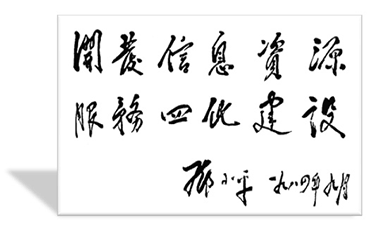 開发信息資源
服務四化建設
鄧小平 一九八四年九月